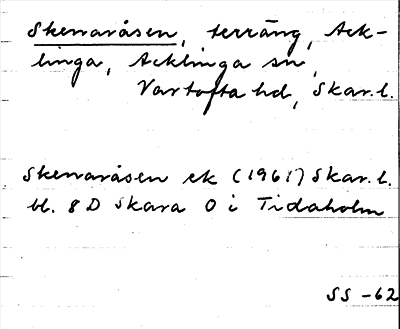 Skenaråsen, terräng, Ack-
linga, Acklinga sn,
Vartofta hd, Skar. l.
Skenaråsen ek (1961) Skar. l.
bl. 8 D Skara O i Tidaholm
SS -62